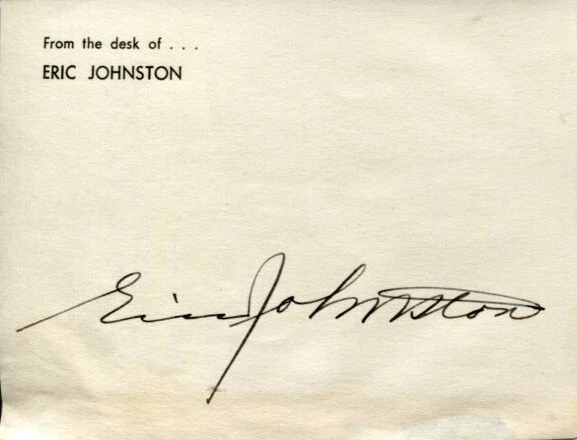 From the desk of . . .
ERIC JOHNSTON
Eric Johnston